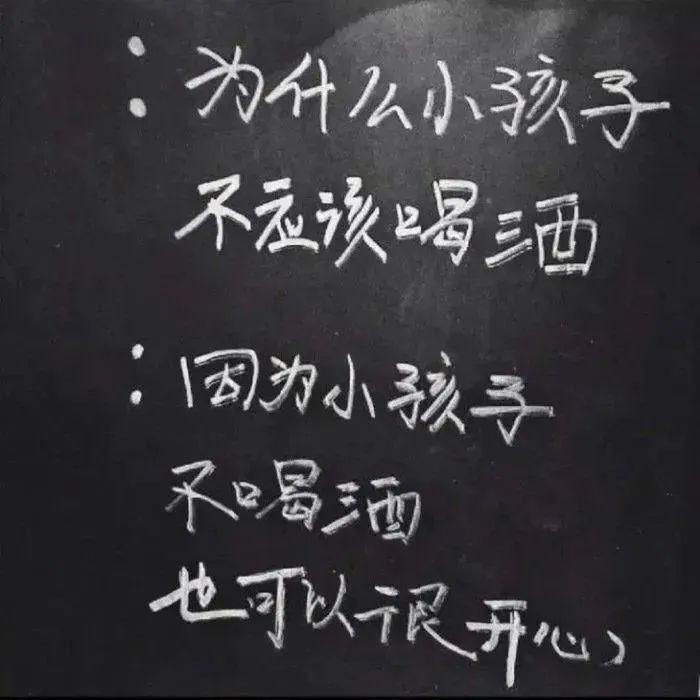 ：为什么小孩子
不应该喝酒
：因为小孩子
不喝酒
也可以很开心